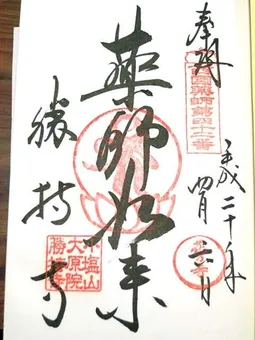 奉拝
西国薬師第四十二番
平成二十年
四月二日
薬師如来
勝持寺
小塩山
大原院
勝持寺